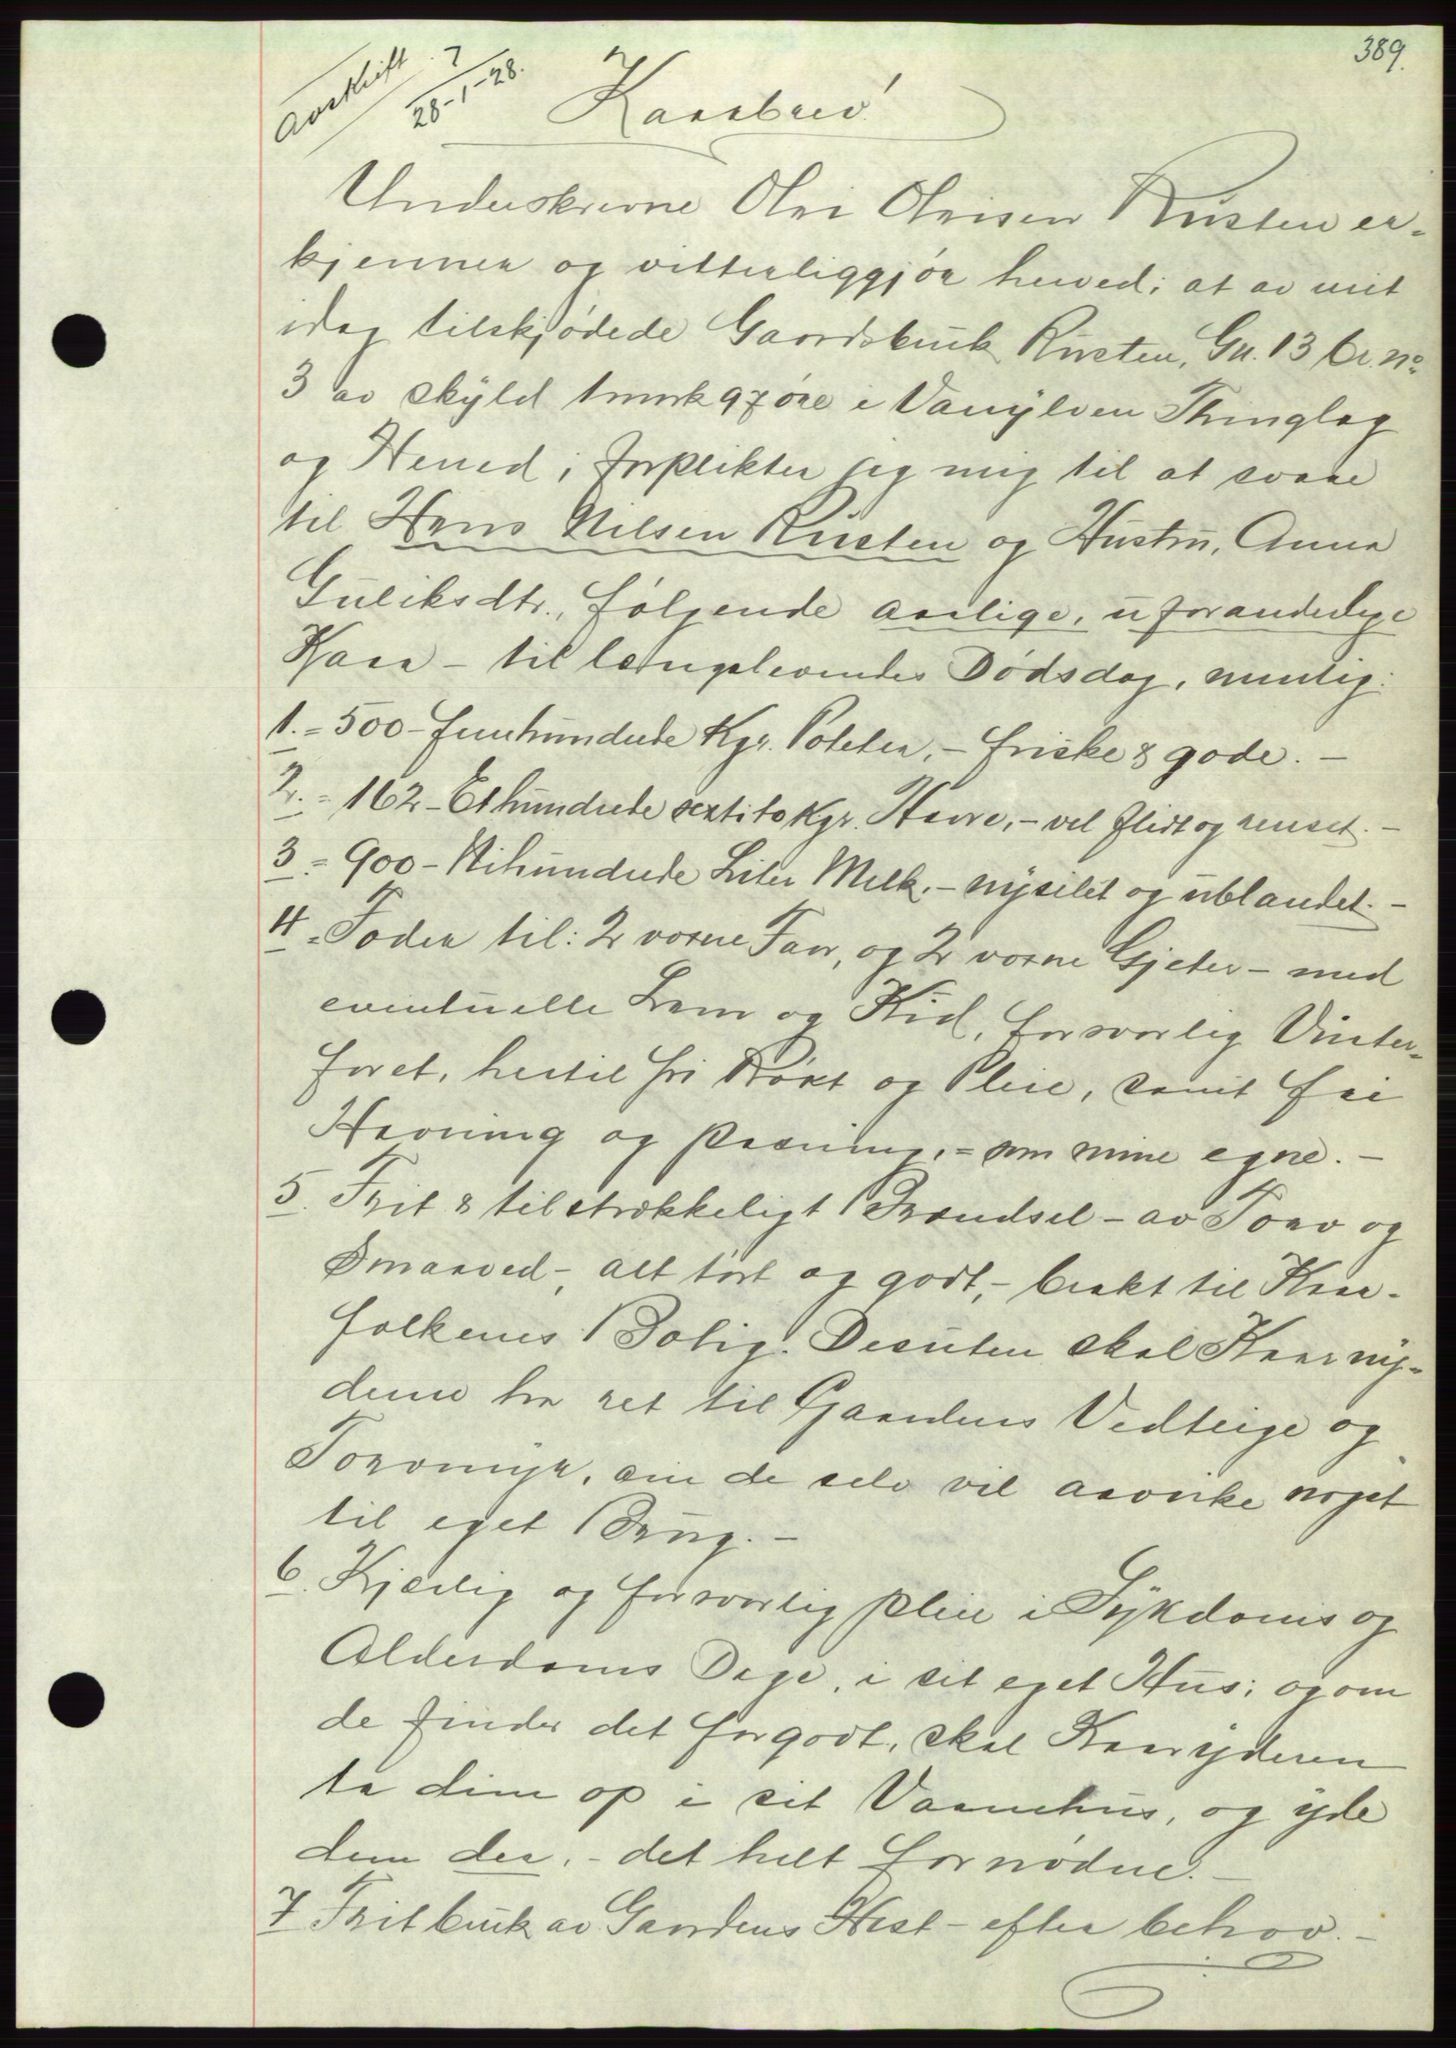 389.
Avskrift 7
28-1-28.
Kaarbrev
Underskrevne Olai Olaisen Rusten er-
kjenner og vitterliggjør herved; at av mit
idag tilskjødede Gaardsbruk Rusten, Gn. 13 br. no
3 av skyld 1 mark 97 øre i Vanylven Thinglag
og Herred; forplikter jeg mig til at svare
til Hans Nilsen Rusten og Hustru, Anna
Guliksdtr., følgende aarlige, uforanderlige
Kaar - til længstlevendes Dødsdag, nemlig:
1. = 500 - femhundrede Kgr. Poteter, - friske & gode. -
2. = 162 - Ethundrede sextito Kgr. Havre, - vel flidt og renset. -
3. = 900 - Nihundrede Liter Melk, - nysilet og ublandet. -
4 = Foder til: 2 voxne Faar, og 2 voxne Gjeter - med
eventuelle Lam og Kid, forsvarlig Vinter-
foret, hertil fri Røkt og Pleie, samt fri
Havning og pasning, = som mine egne. -
5. Frit & tilstrækkeligt Brændsel - av Torv og
Smaaved -, alt tørt og godt, - brakt til Kaar-
folkenes Bolig. Desuten skal Kaarny-
derne ha ret til Gaardens Vedteige og
Torvmyr, om de selv vil aavirke noget
til eget Brug. -
6. Kjærlig og forsvarlig pleie i Sykdoms og
Alderdoms Dage, i sit eget Hus; og om
de finder det forgodt, skal Kaaryderen
ta dem op i sit Vaanehus, og yde
dem der, - det helt fornødne. -
7 Frit bruk av Gaardens Hest - efter behov. -